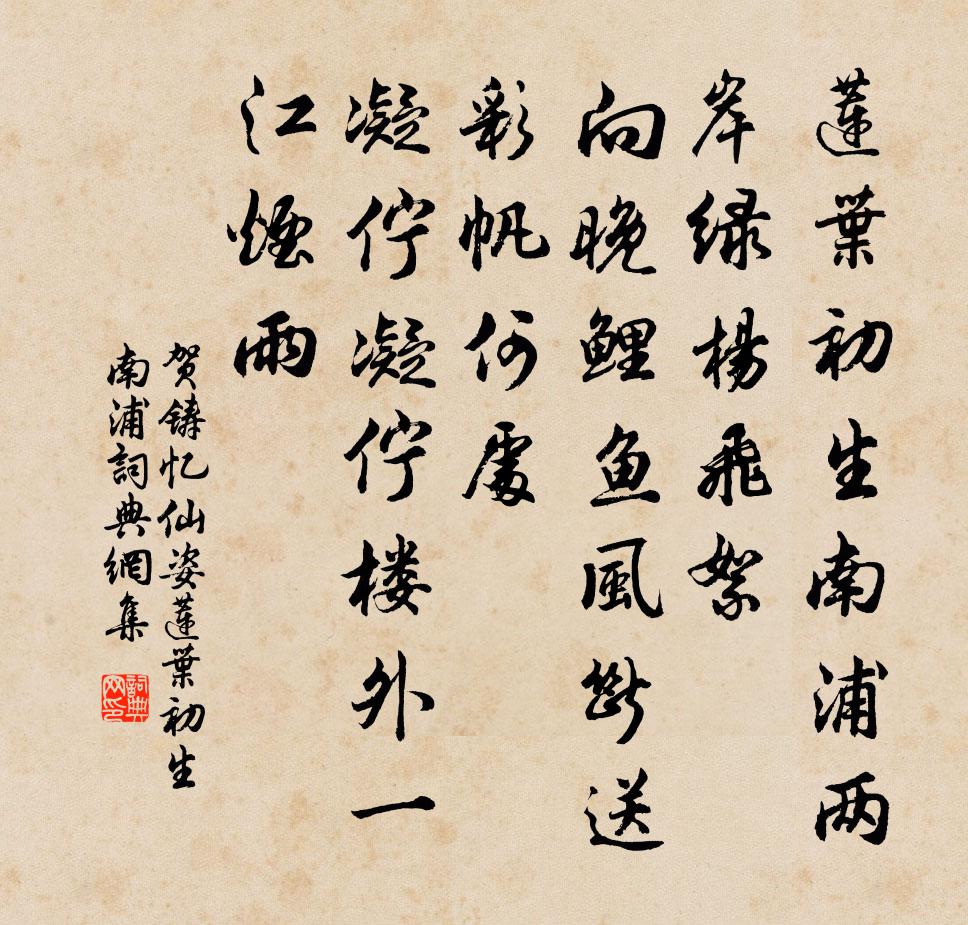 蓮葉初生南浦两
岸绿楊飛絮
向晚鯉魚風断送
彩帆何處
凝佇凝佇楼外一
江煙雨
賀鑄忆仙姿蓮葉初生
南浦詞典網集
詞典网印